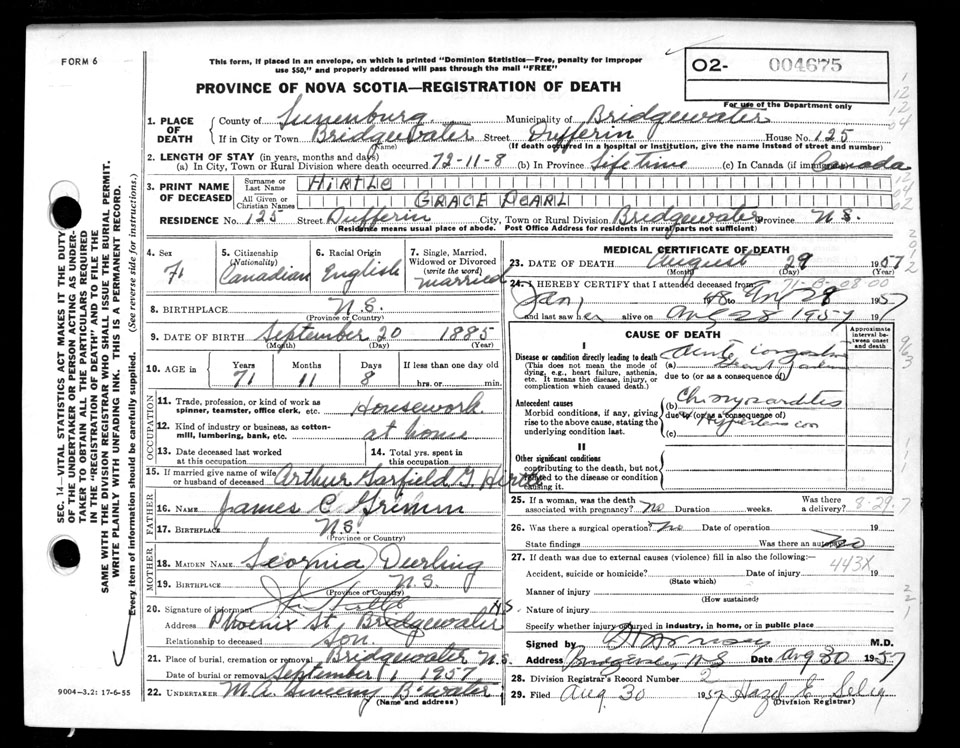 FORM 6
This form, if placed in an envelope, on which is printed "Dominion Statistics—Free, penalty for improper
use $50," and properly addressed will pass through the mail "FREE"
PROVINCE OF NOVA SCOTIA—REGISTRATION OF DEATH
O2- 004675
For use of the Department only
1. PLACE OF DEATH
County of Lunenburg Municipality of Bridgewater
If in City or Town Bridgewater Street Dufferin House No. 125
(Name) (If death occurred in a hospital or institution, give the name instead of street and number)
2. LENGTH OF STAY (in years, months and days)
(a) In City, Town or Rural Division where death occurred 72-11-8 (b) In Province Life Time (c) In Canada (if immigrant) Canada
3. PRINT NAME OF DECEASED
Surname or Last Name HIRTLE
All Given or Christian Names GRACE PEARL
RESIDENCE No. 125 Street Dufferin City, Town or Rural Division Bridgewater Province N.S.
(Residence means usual place of abode. Post Office Address for residents in rural parts not sufficient)
4. Sex
F
5. Citizenship (Nationality)
Canadian
6. Racial Origin
English
7. Single, Married, Widowed or Divorced (write the word)
married
8. BIRTHPLACE N.S.
(Province or Country)
9. DATE OF BIRTH September 20 1885
(Month) (Day) (Year)
10. AGE in
Years Months Days If less than one day old
71 11 8 hrs. or min.
OCCUPATION
11. Trade, profession, or kind of work as spinner, teamster, office clerk, etc. Housework
12. Kind of industry or business, as cotton-mill, lumbering, bank, etc. at home
13. Date deceased last worked at this occupation
14. Total yrs. spent in this occupation
15. If married give name of wife or husband of deceased Arthur Garfield G. Hirtle
FATHER
16. NAME James C Grimm
17. BIRTHPLACE N.S.
(Province or Country)
MOTHER
18. MAIDEN NAME Durling
19. BIRTHPLACE N.S.
(Province or Country)
20. Signature of informant
Address Phoenix St, Bridgewater N.S
Relationship to deceased Son.
21. Place of burial, cremation or removal Bridgewater N.S.
Date of burial or removal September 1, 1957
22. UNDERTAKER M.A. Sweeny B'water
(Name and address)
MEDICAL CERTIFICATE OF DEATH
23. DATE OF DEATH August 29 1957
(Month) (Day) (Year)
24. I HEREBY CERTIFY that I attended deceased from
Jan to Aug 28 1957
and last saw her alive on Aug 28 1957 19
CAUSE OF DEATH
Approximate interval between onset and death
I
Disease or condition directly leading to death
(This does not mean the mode of dying, e.g., heart failure, asthenia, etc. It means the disease, injury, or complication which caused death.)
(a) Acute
due to (or as a consequence of)
Antecedent causes
Morbid conditions, if any, giving rise to the above cause, stating the underlying condition last.
(b)
due to (or as a consequence of)
(c) Hypertension
II
Other significant conditions
contributing to the death, but not related to the disease or condition causing it.
25. If a woman, was the death associated with pregnancy? No Duration weeks. Was there a delivery?
8-29-7
26. Was there a surgical operation? No Date of operation 19
State findings Was there an autopsy No
27. If death was due to external causes (violence) fill in also the following:—
443X
Accident, suicide or homicide? Date of injury 19
(State which)
Manner of injury
(How sustained)
Nature of injury
Specify whether injury occurred in industry, in home, or in public place
Signed by M.D.
Address Bridgewater N S Date Aug 30 1957
28. Division Registrar's Record Number 2
29. Filed Aug. 30 1957 Hazel E. Selig
(Division Registrar)
SEC. 14—VITAL STATISTICS ACT MAKES IT THE DUTY
OF THE UNDERTAKER OR PERSON ACTING AS UNDER-
TAKER TO OBTAIN ALL THE PARTICULARS REQUIRED
IN THE "REGISTRATION OF DEATH" AND TO FILE THE
SAME WITH THE DIVISION REGISTRAR WHO SHALL ISSUE THE BURIAL PERMIT.
WRITE PLAINLY WITH UNFADING INK. THIS IS A PERMANENT RECORD.
Every item of information should be carefully supplied. (See reverse side for instructions.)
9004-3.2: 17-6-55